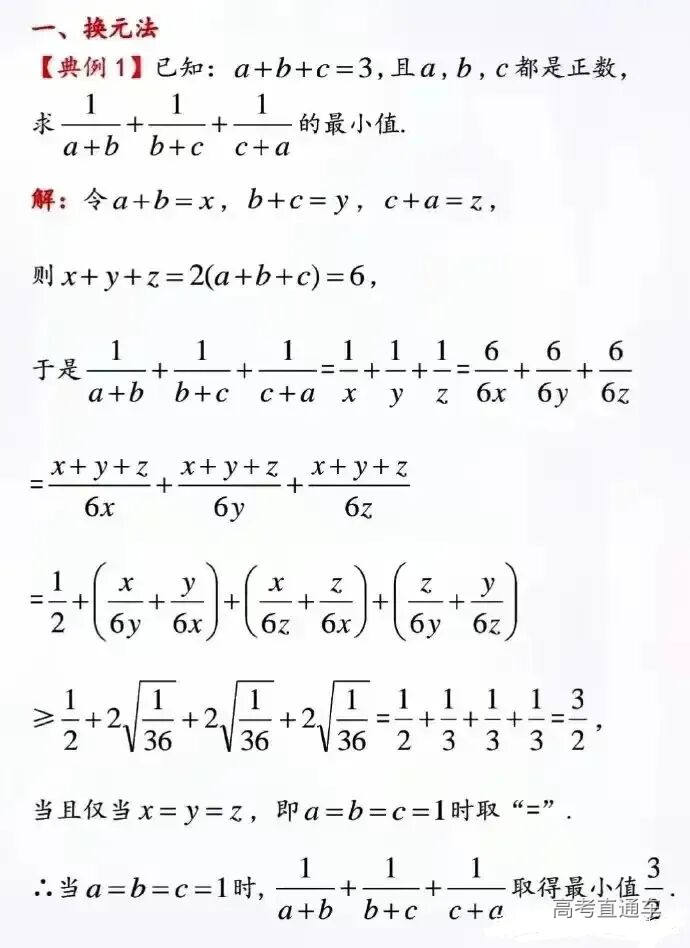 一、换元法
【典例1】已知：a+b+c=3,且a,b,c都是正数，
求 1/(a+b) + 1/(b+c) + 1/(c+a) 的最小值.
解：令a+b=x，b+c=y，c+a=z，
则x+y+z=2(a+b+c)=6，
于是 1/(a+b) + 1/(b+c) + 1/(c+a) = 1/x + 1/y + 1/z = 6/(6x) + 6/(6y) + 6/(6z)
= (x+y+z)/(6x) + (x+y+z)/(6y) + (x+y+z)/(6z)
= 1/2 + (x/(6y) + y/(6x)) + (x/(6z) + z/(6x)) + (z/(6y) + y/(6z))
≥ 1/2 + 2√(1/36) + 2√(1/36) + 2√(1/36) = 1/2 + 1/3 + 1/3 + 1/3 = 3/2，
当且仅当x=y=z，即a=b=c=1时取“=”.
∴当a=b=c=1时, 1/(a+b) + 1/(b+c) + 1/(c+a) 取得最小值 3/2.
高考直通车